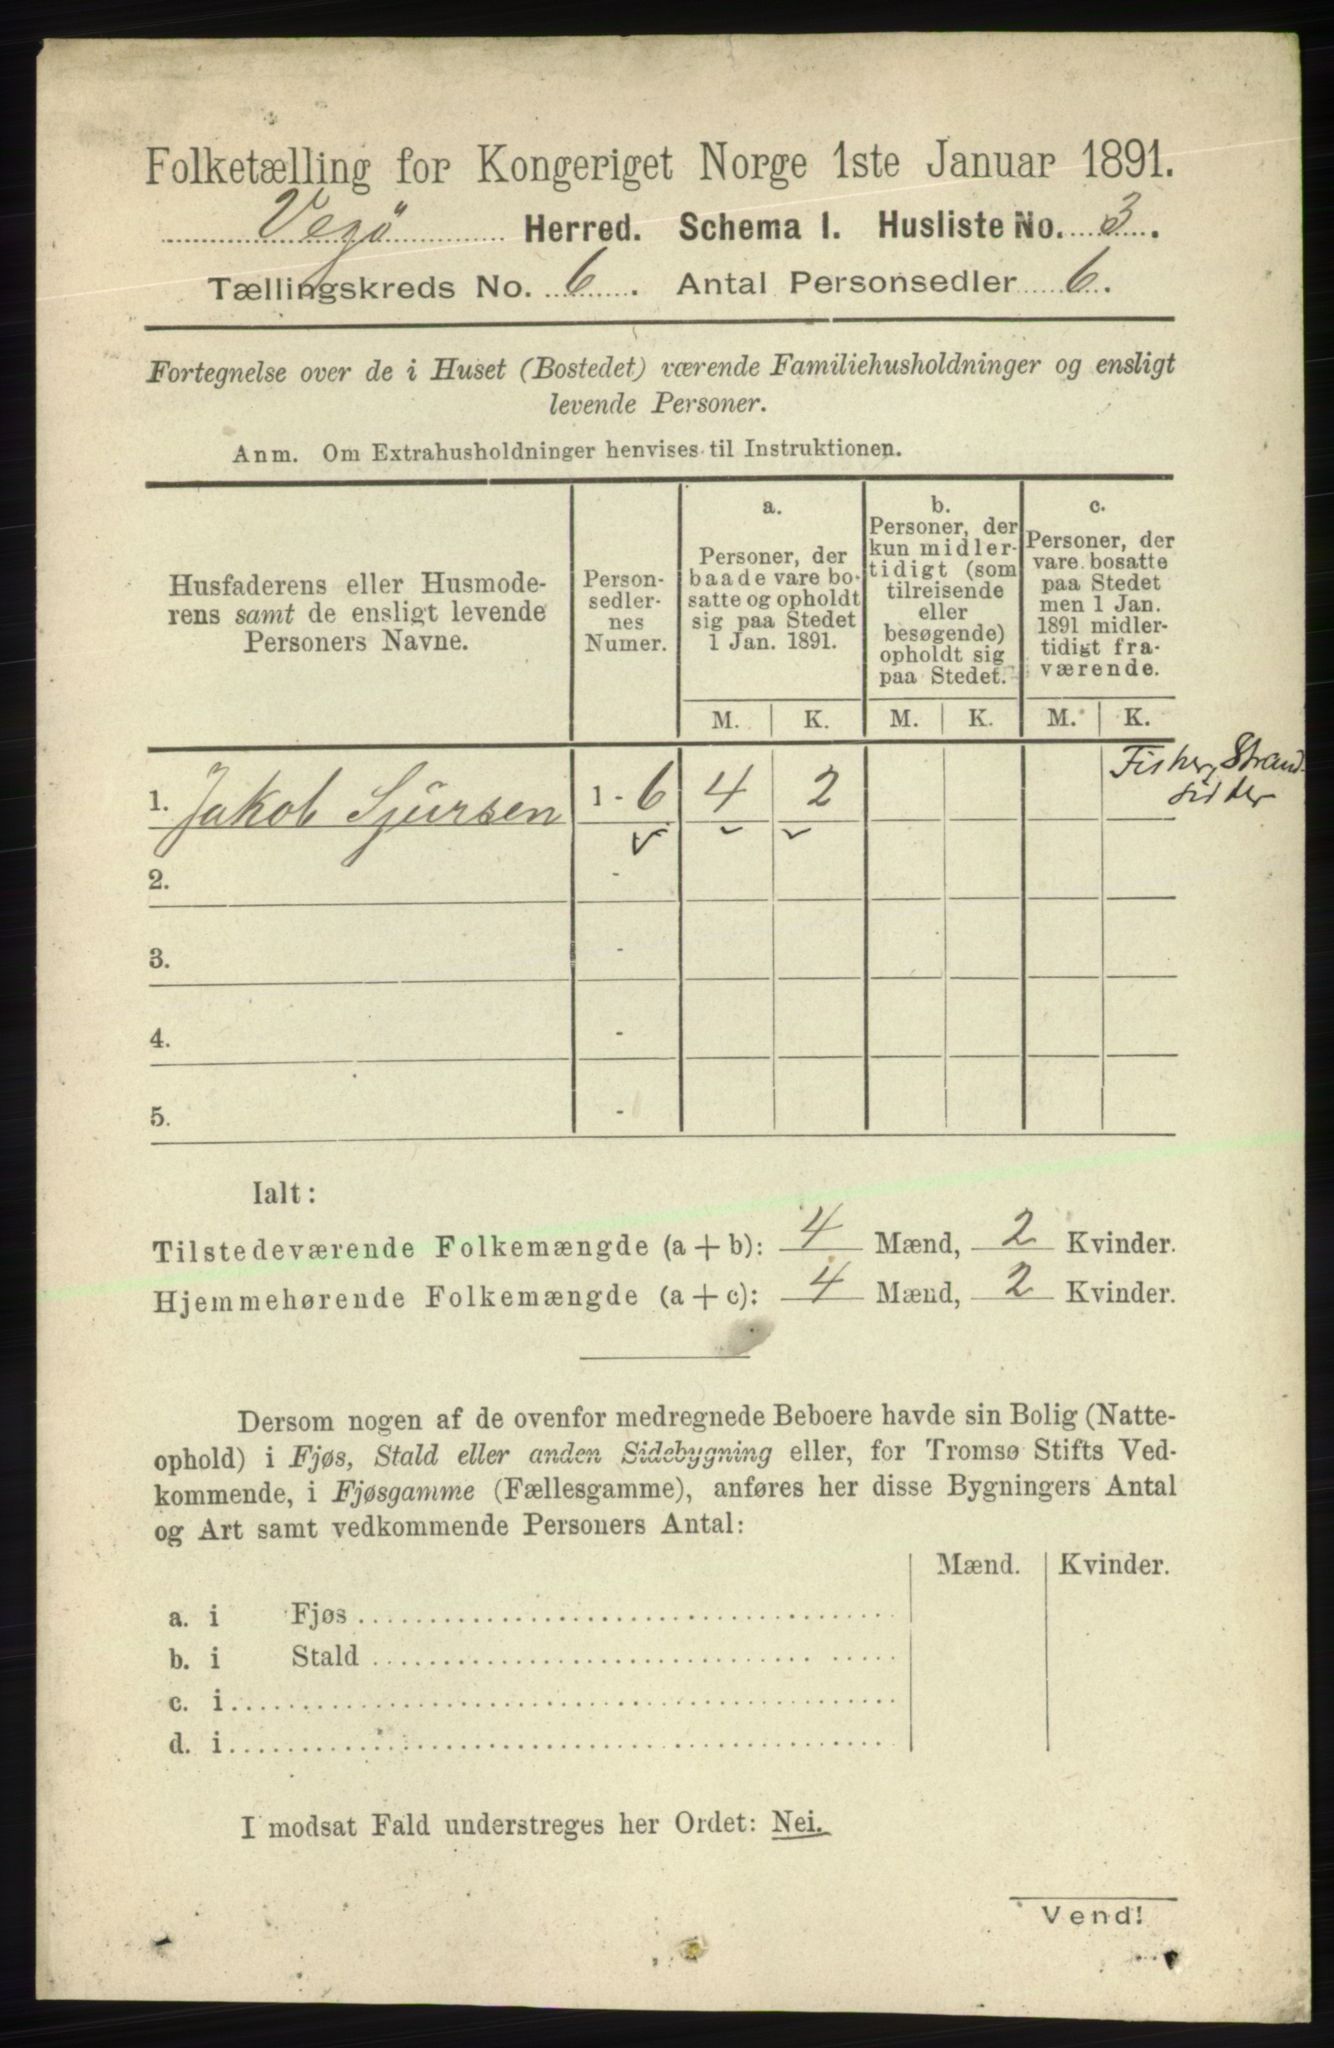 Folketælling for Kongeriget Norge 1ste Januar 1891.
Vegö Herred. Schema I. Husliste No. 3.
Tællingskreds No. 6. Antal Personsedler 6.
Fortegnelse over de i Huset (Bostedet) værende Familiehusholdninger og ensligt
levende Personer.
Anm. Om Extrahusholdninger henvises til Instruktionen.
Husfaderens eller Husmode-
rens samt de ensligt levende
Personers Navne.
Person-
sedler-
nes
Numer.
a.
Personer, der
baade vare bo-
satte og opholdt
sig paa Stedet
1 Jan. 1891.
b.
Personer, der
kun midler-
tidigt (som
tilreisende
eller
besøgende)
opholdt sig
paa Stedet.
c.
Personer, der
vare bosatte
paa Stedet
men 1 Jan.
1891 midler-
tidigt fra-
værende.
M. K. M. K. M. K.
1. Jakob Sjursen 1 - 6 4 2 Fisker, Strand-
sidder
2. -
3. -
4. -
5. -
Ialt:
Tilstedeværende Folkemængde (a + b): 4 Mænd, 2 Kvinder.
Hjemmehørende Folkemængde (a + c): 4 Mænd, 2 Kvinder.
Dersom nogen af de ovenfor medregnede Beboere havde sin Bolig (Natte-
ophold) i Fjøs, Stald eller anden Sidebygning eller, for Tromsø Stifts Ved-
kommende, i Fjøsgamme (Fællesgamme), anføres her disse Bygningers Antal
og Art samt vedkommende Personers Antal:
Mænd. Kvinder.
a. i Fjøs
b. i Stald
c. i
d. i
I modsat Fald understreges her Ordet: Nei.
Vend!